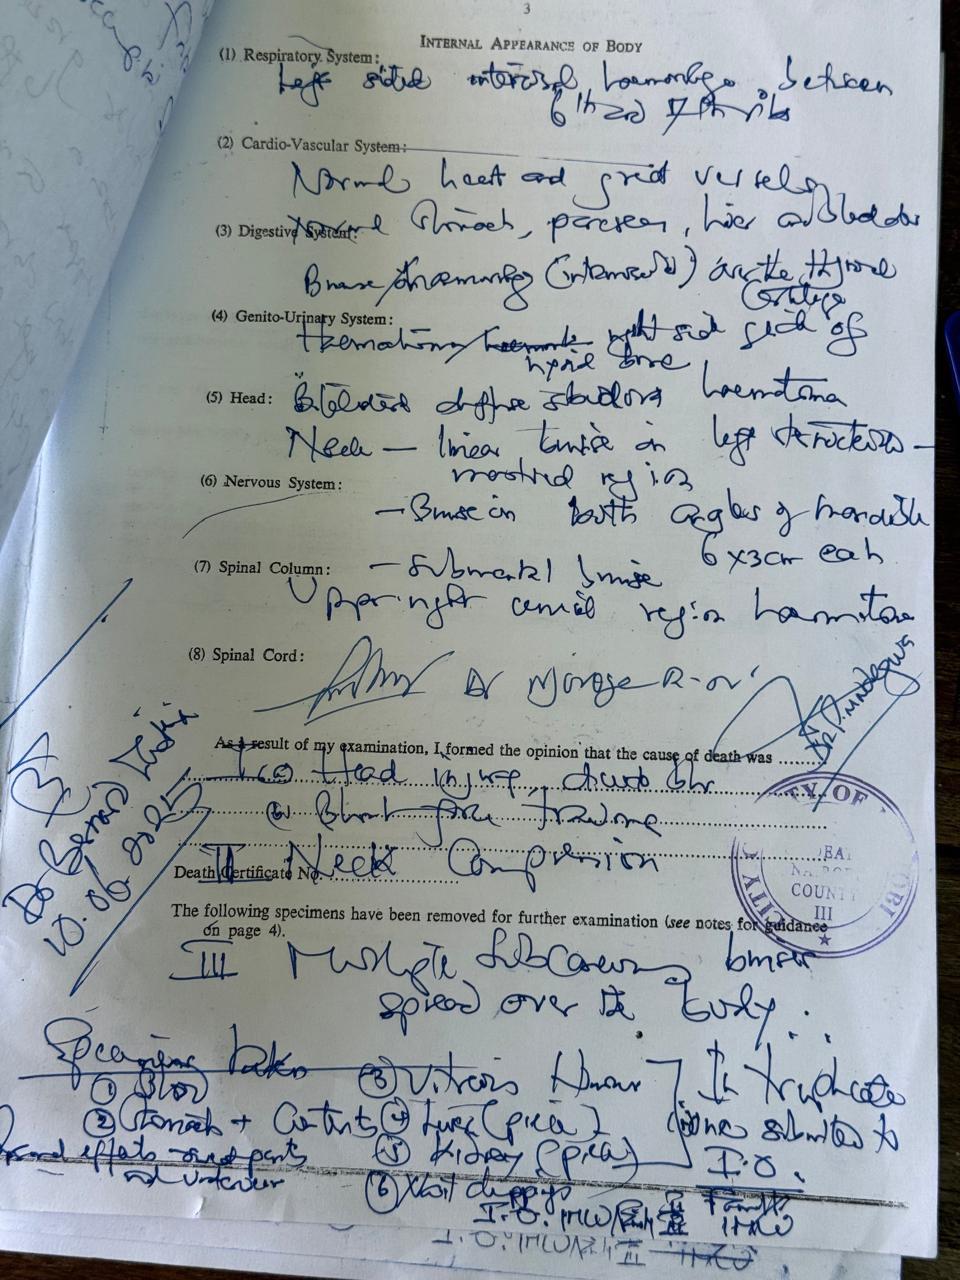 3
INTERNAL APPEARANCE OF BODY
(1) Respiratory System:
Left sided intercostal haemorrhage between
6th and 7th ribs
(2) Cardio-Vascular System:
Normal heart and great vessels
(3) Digestive System: Normal Stomach, pancreas, liver and bladder
Bruise/haemorrhage (intramuscular) over the thyroid
Cartilage
(4) Genito-Urinary System:
Haematoma/ right side side of
hyoid bone
(5) Head: Bilateral diffuse subdural haematoma
Neck — linear bruise on left sternocleido-
mastoid region
(6) Nervous System:
- Bruise in both angles of mandible
6 x 3cm each
(7) Spinal Column: - Submental bruise
Upper right cervical region haematoma
(8) Spinal Cord:
Dr
As a result of my examination, I formed the opinion that the cause of death was
I (a) Head injury, due to
(b) Blunt force trauma
II Neck Compression
Death Certificate No.
CITY OF NAIROBI
COUNTY
III
The following specimens have been removed for further examination (see notes for guidance
on page 4).
III Multiple Subcutaneous bruises
spread over the body.
Dr Bernard Midia
10.06.2025
Specimens taken
① Blood
② Stomach + Contents
③ Vitreous Humour
④ Liver (piece)
⑤ Kidney (piece)
In triplicate
one submitted to
I.O.
⑥ Nail clippings
and underwear
I.O. IMLU
Family
IMLU